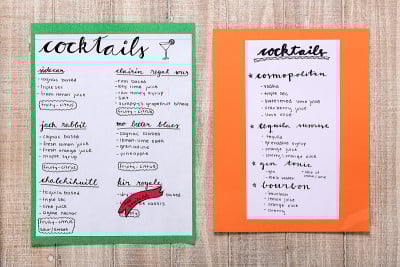 cocktails
sidecar
- cognac based
- triple sec
- fresh lemon juice
fruity-citrus
jack rabbit
- cognac based
- fresh lemon juice
- fresh orange juice
- maple syrup
fruity-citrus
chalchihuitl
- tequila based
- triple sec
- lime juice
- agave nectar
fruity-citrus
sour/sweet
clairin royal sour
- rum based
- key lime juice
- raw honey syrup
- salt
- grapefruit bitters
fruity-citrus
mo better blues
- cognac based
- lemon-lime soda
- grenadine
- pineapple
fruity-citrus
kir royale
cocktails
cosmopolitan
- vodka
- triple sec
- sweetened lime juice
- cranberry juice
- lime juice
tequila sunrise
- tequila
- grenadine syrup
- orange juice
- cherry / orange slice
gin tonic
- gin
- tonic water
- slice of
bourbon
- bourbon
- lemon juice
- orange slice
- cherry